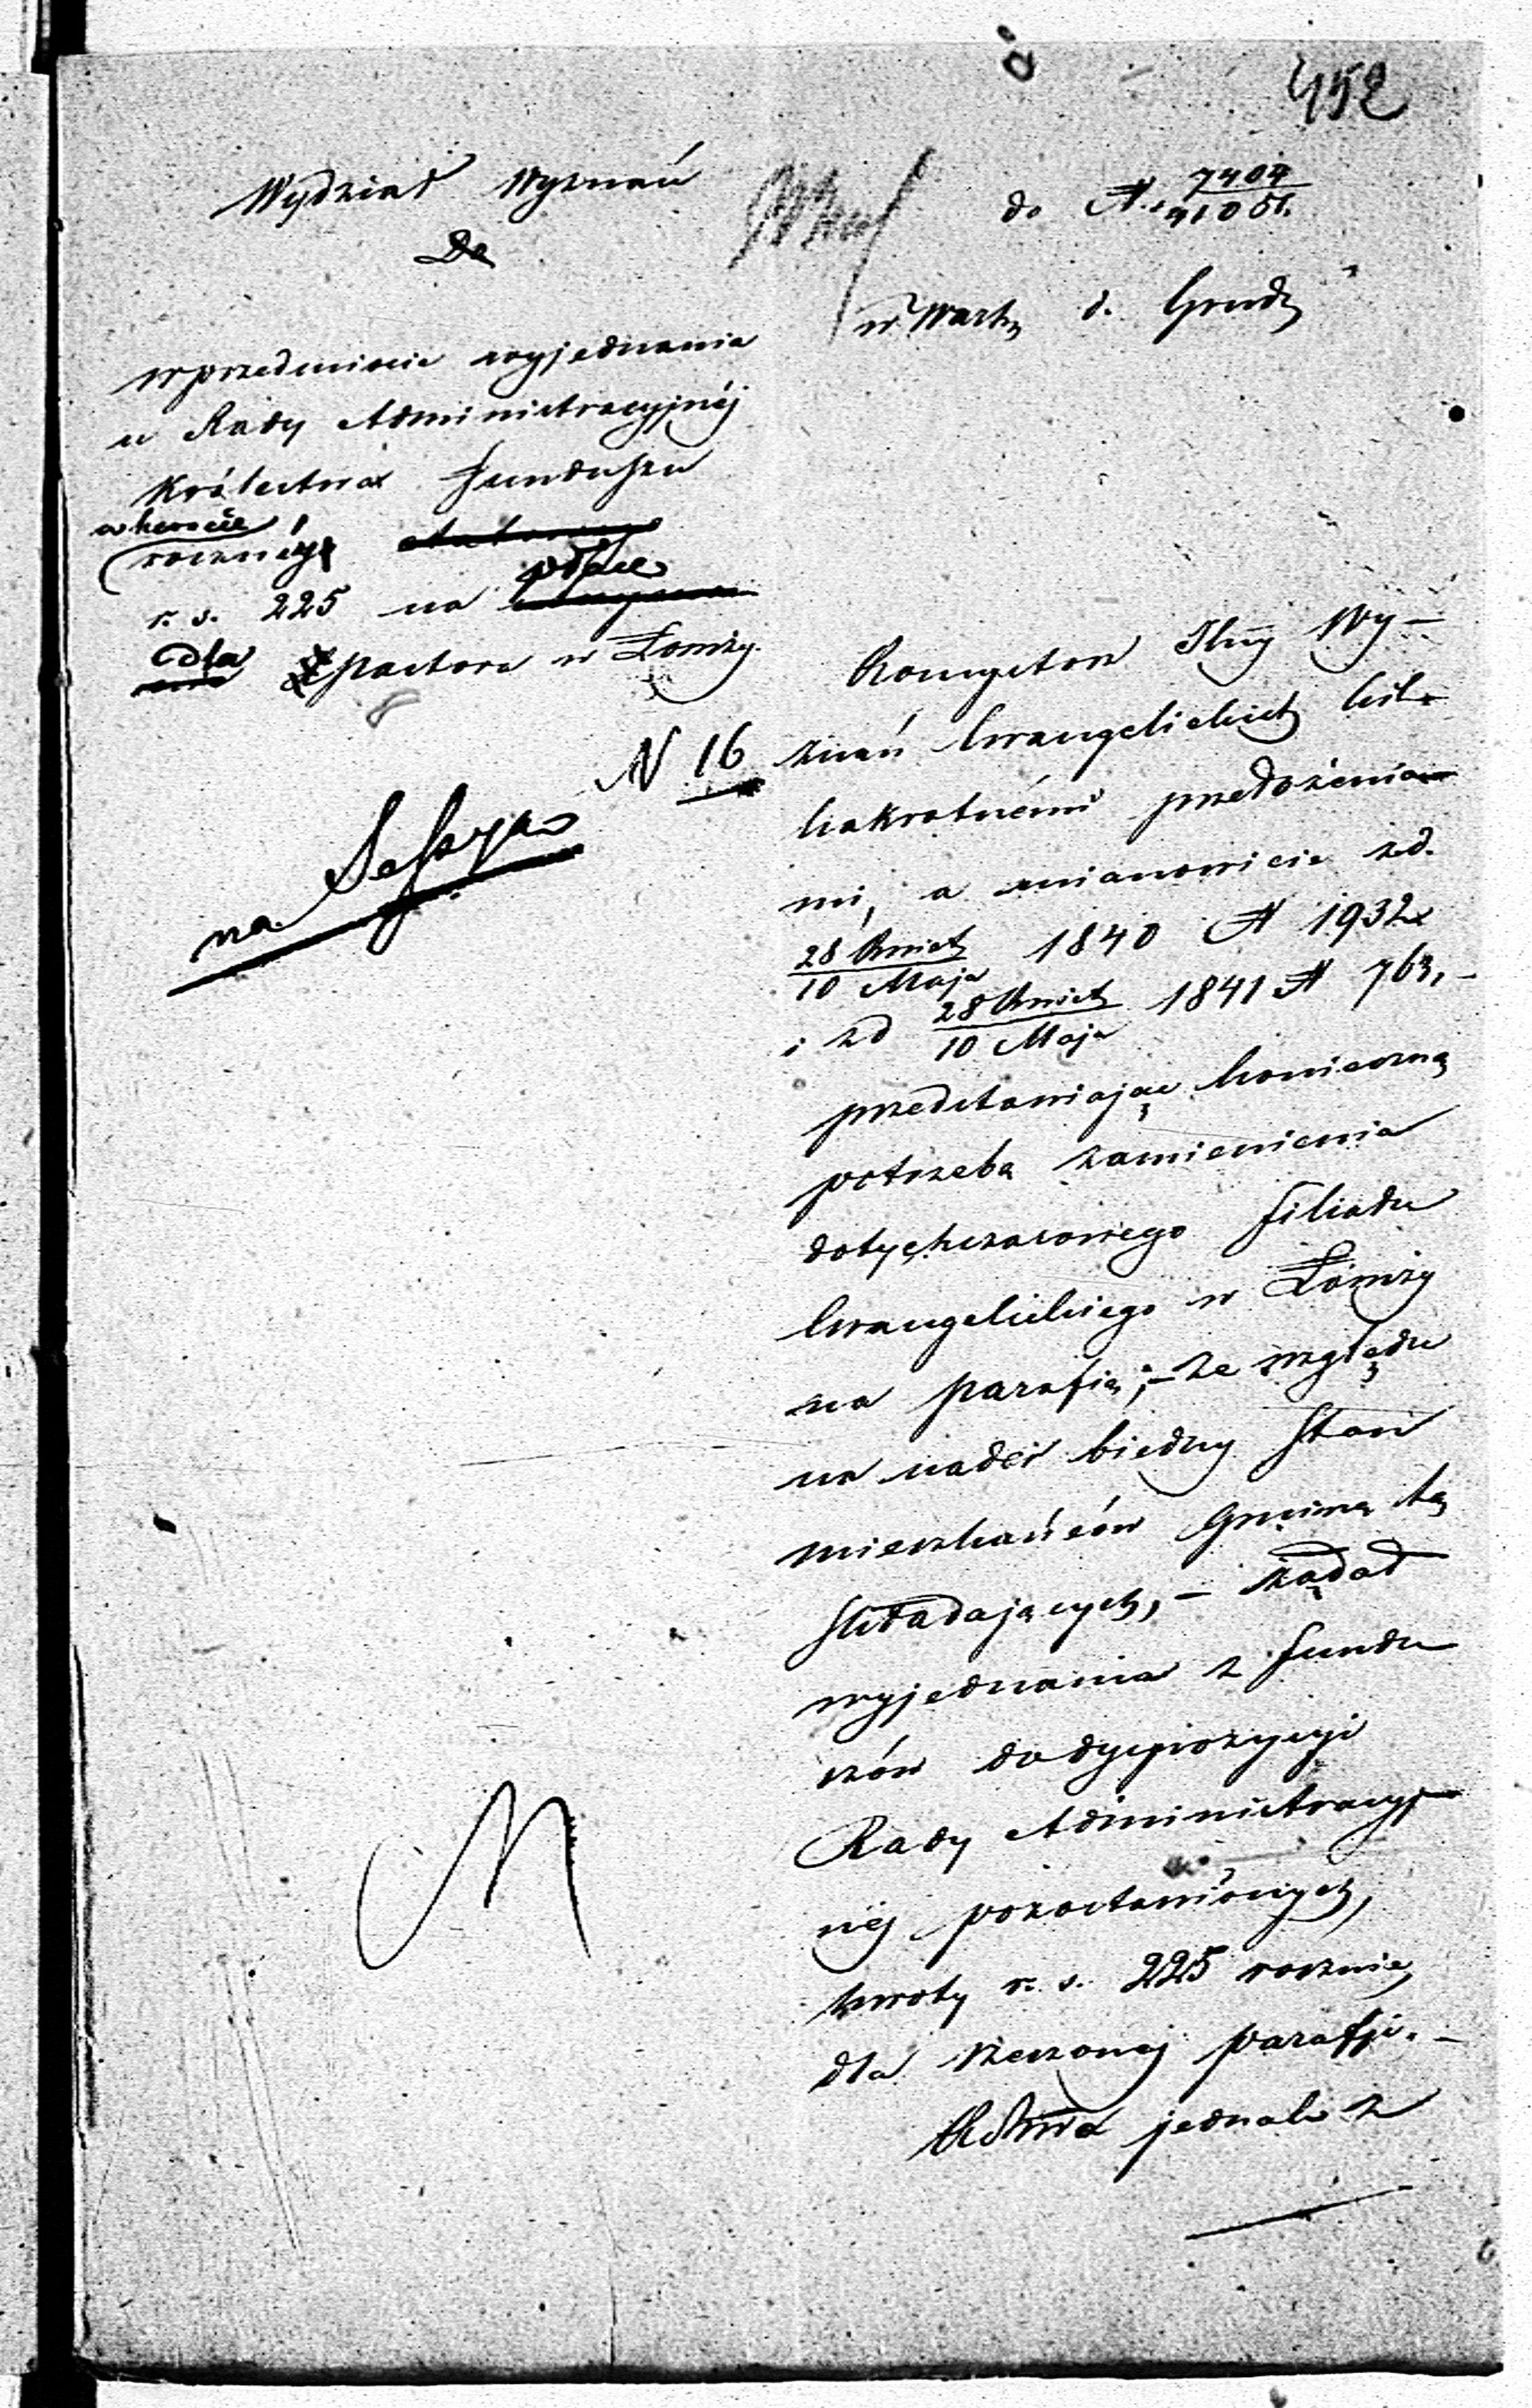 452
Wydział Wyznań
Do
do N. 7404
w Warsz. d. Grud.
w przedmiocie wyjednania
u Rady Administracyjnéj
Królestwa funduszu
w kwocie
rocznéj
płacę
r. s. 225 na
dla Pastora w Łomży.
N 16
na Sessyą
Konsystorz Jlny Wy-
znań Ewangelickich kil-
kakrotnémi przedłożenia-
mi, a mianowicie z d.
28 Kwiet. / 10 Maja 1840 N 1932
i z d 28 Kwiet. / 10 Maja 1841 N 763,-
przedstawiając konieczną
potrzebę zamienienia
dotychczasowego filiału
Ewangelickiego w Łomży
na parafią; - ze względu
na nader biedny stan
mieszkańców Gminę tę
składających, - żądał
wyjednania z fundu
szów do dyspozycyi
Rady Administracyj-
néj pozostawionych,
kwoty r. s. 225 rocznie
dla rzeczonéj parafji. -
jednak z